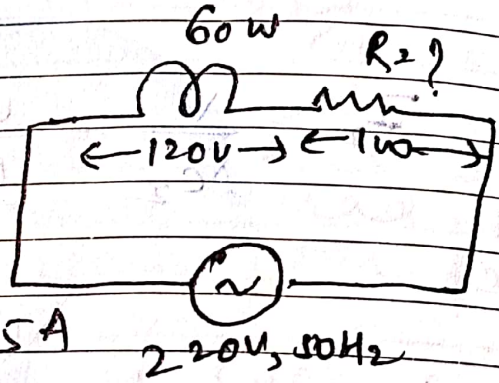 60W
R=?
120V
100
5A
220V, 50Hz